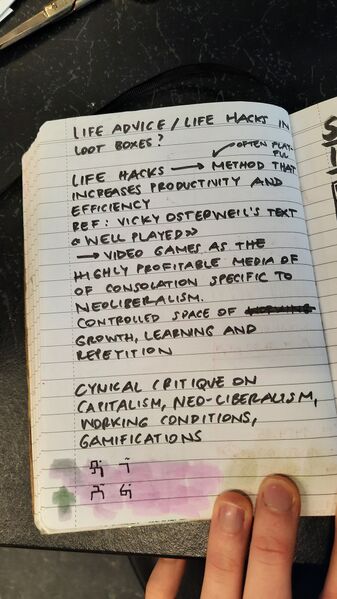 LIFE ADVICE / LIFE HACKS IN
LOOT BOXES?
OFTEN PLAY-
FUL
LIFE HACKS → METHOD THAT
INCREASES PRODUCTIVITY AND
EFFICIENCY
REF: VICKY OSTERWEIL'S TEXT
«WELL PLAYED»
→ VIDEO GAMES AS THE
HIGHLY PROFITABLE MEDIA OF
OF CONSOLATION SPECIFIC TO
NEOLIBERALISM.
CONTROLLED SPACE OF
GROWTH, LEARNING AND
REPETITION
CYNICAL CRITIQUE ON
CAPITALISM, NEO-LIBERALISM,
WORKING CONDITIONS,
GAMIFICATIONS